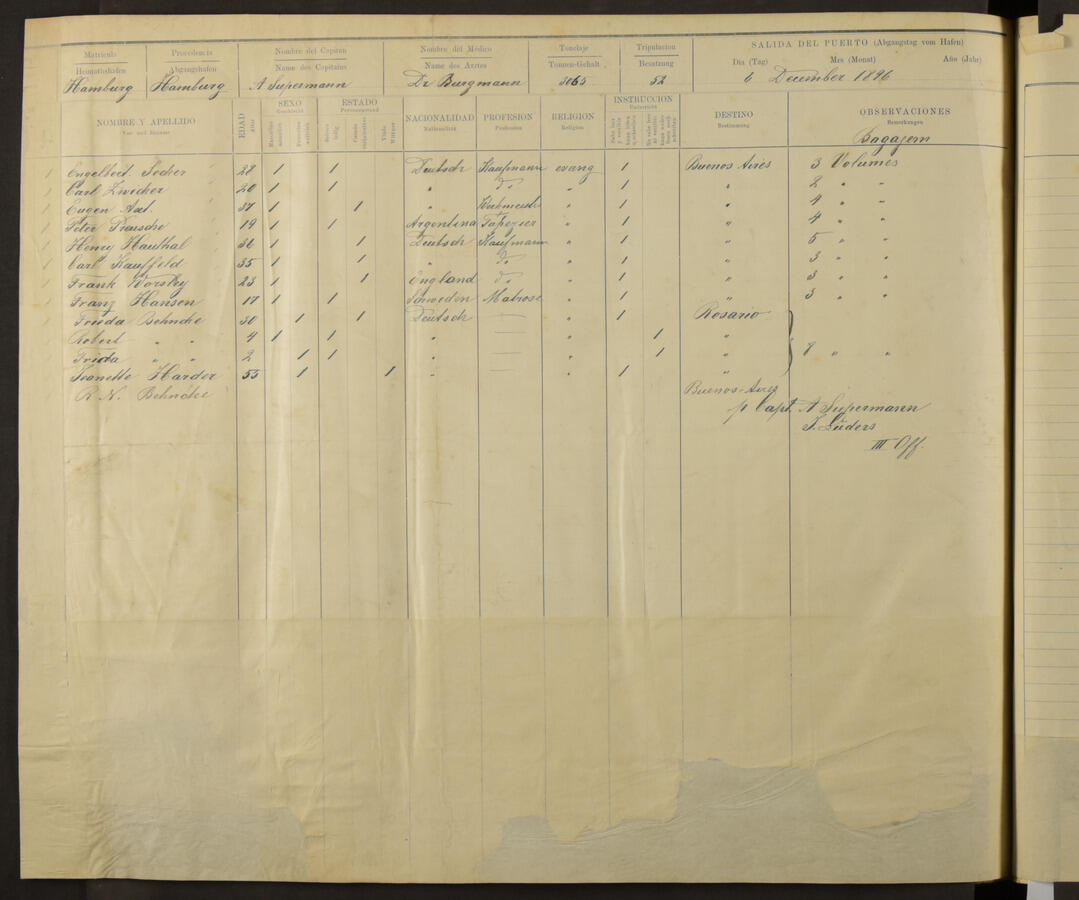 Matricula Procedencia Nombre del Capitan Nombre del Médico Tonelaje Tripulacion SALIDA DEL PUERTO (Abgangstag vom Hafen)
Heimathshafen Abgangshafen Name des Capitains Name des Arztes Tonnen-Gehalt Besatzung Dia (Tag) Mes (Monat) Año (Jahr)
Hamburg Hamburg A Siepermann Dr Burgmann 3065 52 6 December 1896
NOMBRE Y APELLIDO EDAD SEXO ESTADO NACIONALIDAD PROFESION RELIGION INSTRUCCION DESTINO OBSERVACIONES
Vor- und Zuname Alter Geschlecht Personenstand Nationalität Profession Religion Unterricht Bestimmung Bemerkungen
Bagagem
1 Engelbert 28 1 1 Deutsch Kaufmann evang 1 Buenos Aires 3 Volumes
1 Carl Zwicker 20 1 1 " do " 1 " 2 " "
1 Eugen 37 1 1 " " 1 " 4 " "
1 Peter 19 1 1 Argentina Tapezier " 1 " 4 " "
1 Henry Hauthal 36 1 1 Deutsch Kaufmann " 1 " 5 " "
1 Carl Kauffeld 35 1 1 " do " 1 " 3 " "
1 Frank Worsley 23 1 1 England do " 1 " 3 " "
1 Franz Hansen 17 1 1 Schweden Matrose " 1 " 3 " "
1 Frieda Behncke 30 1 1 Deutsch — " 1 Rosario
1 Robert " " 4 1 1 " — " 1 "
1 Frida " " 2 1 1 " — " 1 " 8 " "
1 Jeanette Harder 55 1 1 " — " 1 "
R. N. Behncke Buenos-Aires
p Capt. A Siepermann
J. Lüders
III Off.